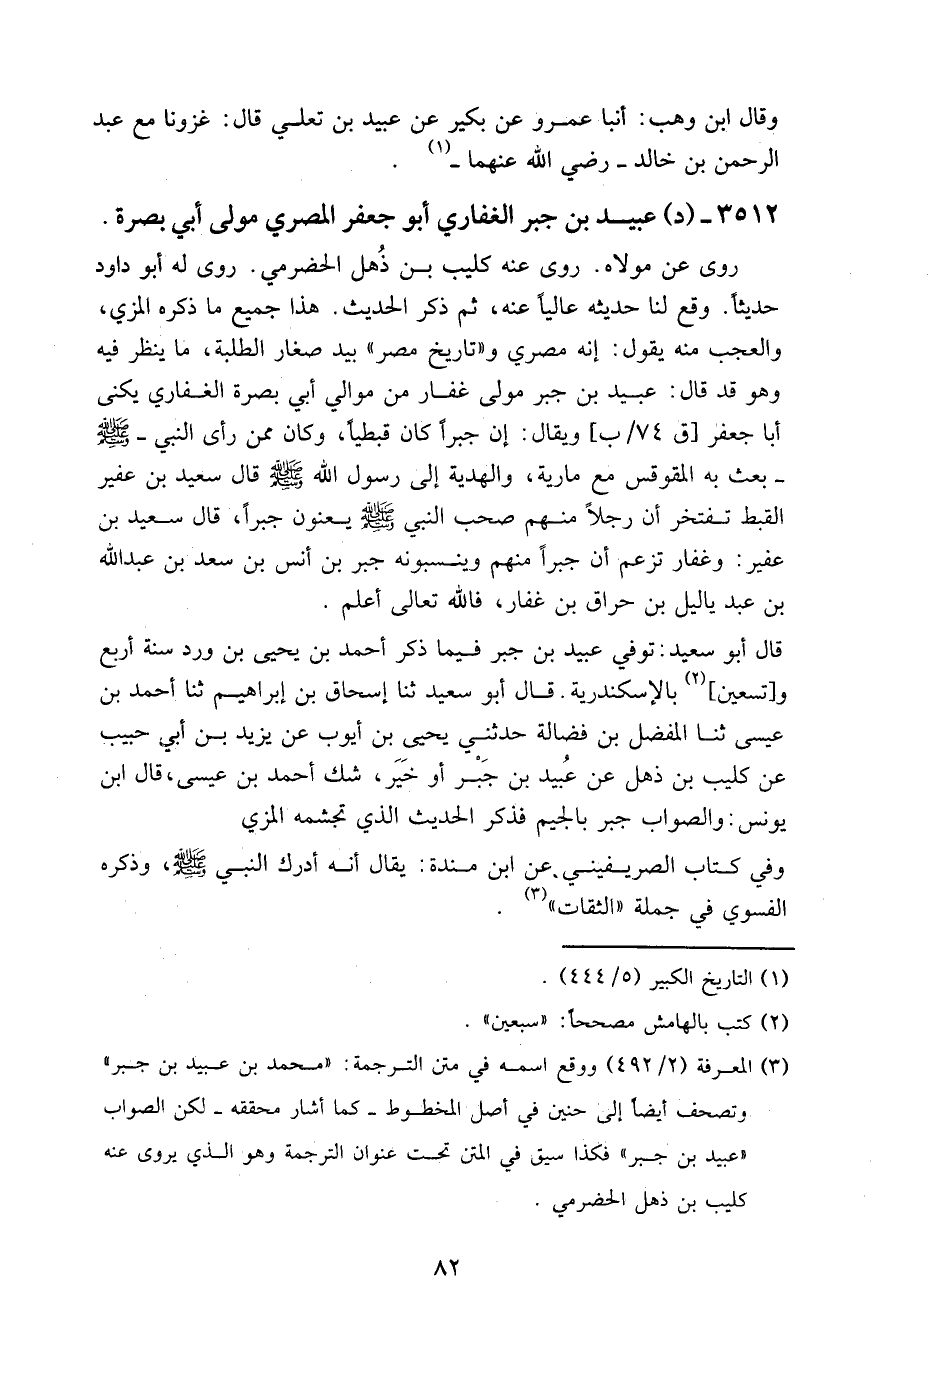 وقال ابن وهب: أنبا عمرو عن بكير عن عبيد بن تعلي قال: غزونا مع عبد
الرحمن بن خالد ـ رضي الله عنهما ـ(١) .
٣٥١٢ ـ (د) عبيد بن جبر الغفاري أبو جعفر المصري مولى أبي بصرة .
روى عن مولاه. روى عنه كليب بن ذُهل الحضرمي. روى له أبو داود
حديثاً. وقع لنا حديثه عالياً عنه، ثم ذكر الحديث. هذا جميع ما ذكره المزي،
والعجب منه يقول: إنه مصري و«تاريخ مصر» بيد صغار الطلبة، ما ينظر فيه
وهو قد قال: عبيد بن جبر مولى غفار من موالي أبي بصرة الغفاري يكنى
أبا جعفر [ق ٧٤/ ب] ويقال: إن جبراً كان قبطياً، وكان ممن رأى النبي ـ ﷺ
ـ بعث به المقوقس مع مارية، والهدية إلى رسول الله ﷺ قال سعيد بن عفير
القبط تفتخر أن رجلاً منهم صحب النبي ﷺ يعنون جبراً، قال سعيد بن
عفير: وغفار تزعم أن جبراً منهم وينسبونه جبر بن أنس بن سعد بن عبدالله
بن عبد ياليل بن حراق بن غفار، فالله تعالى أعلم .
قال أبو سعيد: توفي عبيد بن جبر فيما ذكر أحمد بن يحيى بن ورد سنة أربع
و[تسعين](٢) بالإسكندرية. قال أبو سعيد ثنا إسحاق بن إبراهيم ثنا أحمد بن
عيسى ثنا المفضل بن فضالة حدثني يحيى بن أيوب عن يزيد بن أبي حبيب
عن كليب بن ذهل عن عُبيد بن جَبْر أو خَيَر، شك أحمد بن عيسى، قال ابن
يونس: والصواب جبر بالجيم فذكر الحديث الذي تجشمه المزي
وفي كتاب الصريفيني عن ابن مندة: يقال أنه أدرك النبي ﷺ، وذكره
الفسوي في جملة «الثقات»(٣) .
(١) التاريخ الكبير (٥/ ٤٤٤) .
(٢) كتب بالهامش مصححاً: «سبعين» .
(٣) المعرفة (٢/ ٤٩٢) ووقع اسمه في متن الترجمة: «محمد بن عبيد بن جبر»
وتصحف أيضاً إلى حنين في أصل المخطوط ـ كما أشار محققه ـ لكن الصواب
«عبيد بن جبر» فكذا سيق في المتن تحت عنوان الترجمة وهو الذي يروى عنه
كليب بن ذهل الحضرمي .
٨٢